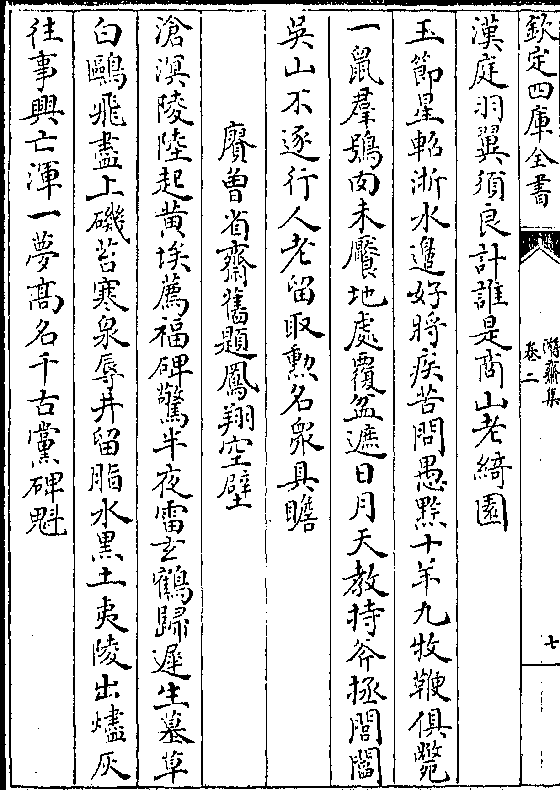 欽定四庫全書
潛齋集
卷二
七
漢庭羽翼須良計誰是商山老綺園
玉節星軺浙水邊好將疾苦問愚黔十年九牧鞭俱斃
一鼠羣鴞肉未饜地處覆盆遮日月天教持斧拯閭閻
吳山不逐行人老留取勲名衆具瞻
賡曽省齋舊題鳳翔空壁
滄溟陵陸起黄埃薦福碑驚半夜雷玄鶴歸遲生墓草
白鷗飛盡上磯苔寒泉辱井留脂水黒土夷陵出燼灰
往事興亡渾一夢髙名千古黨碑魁